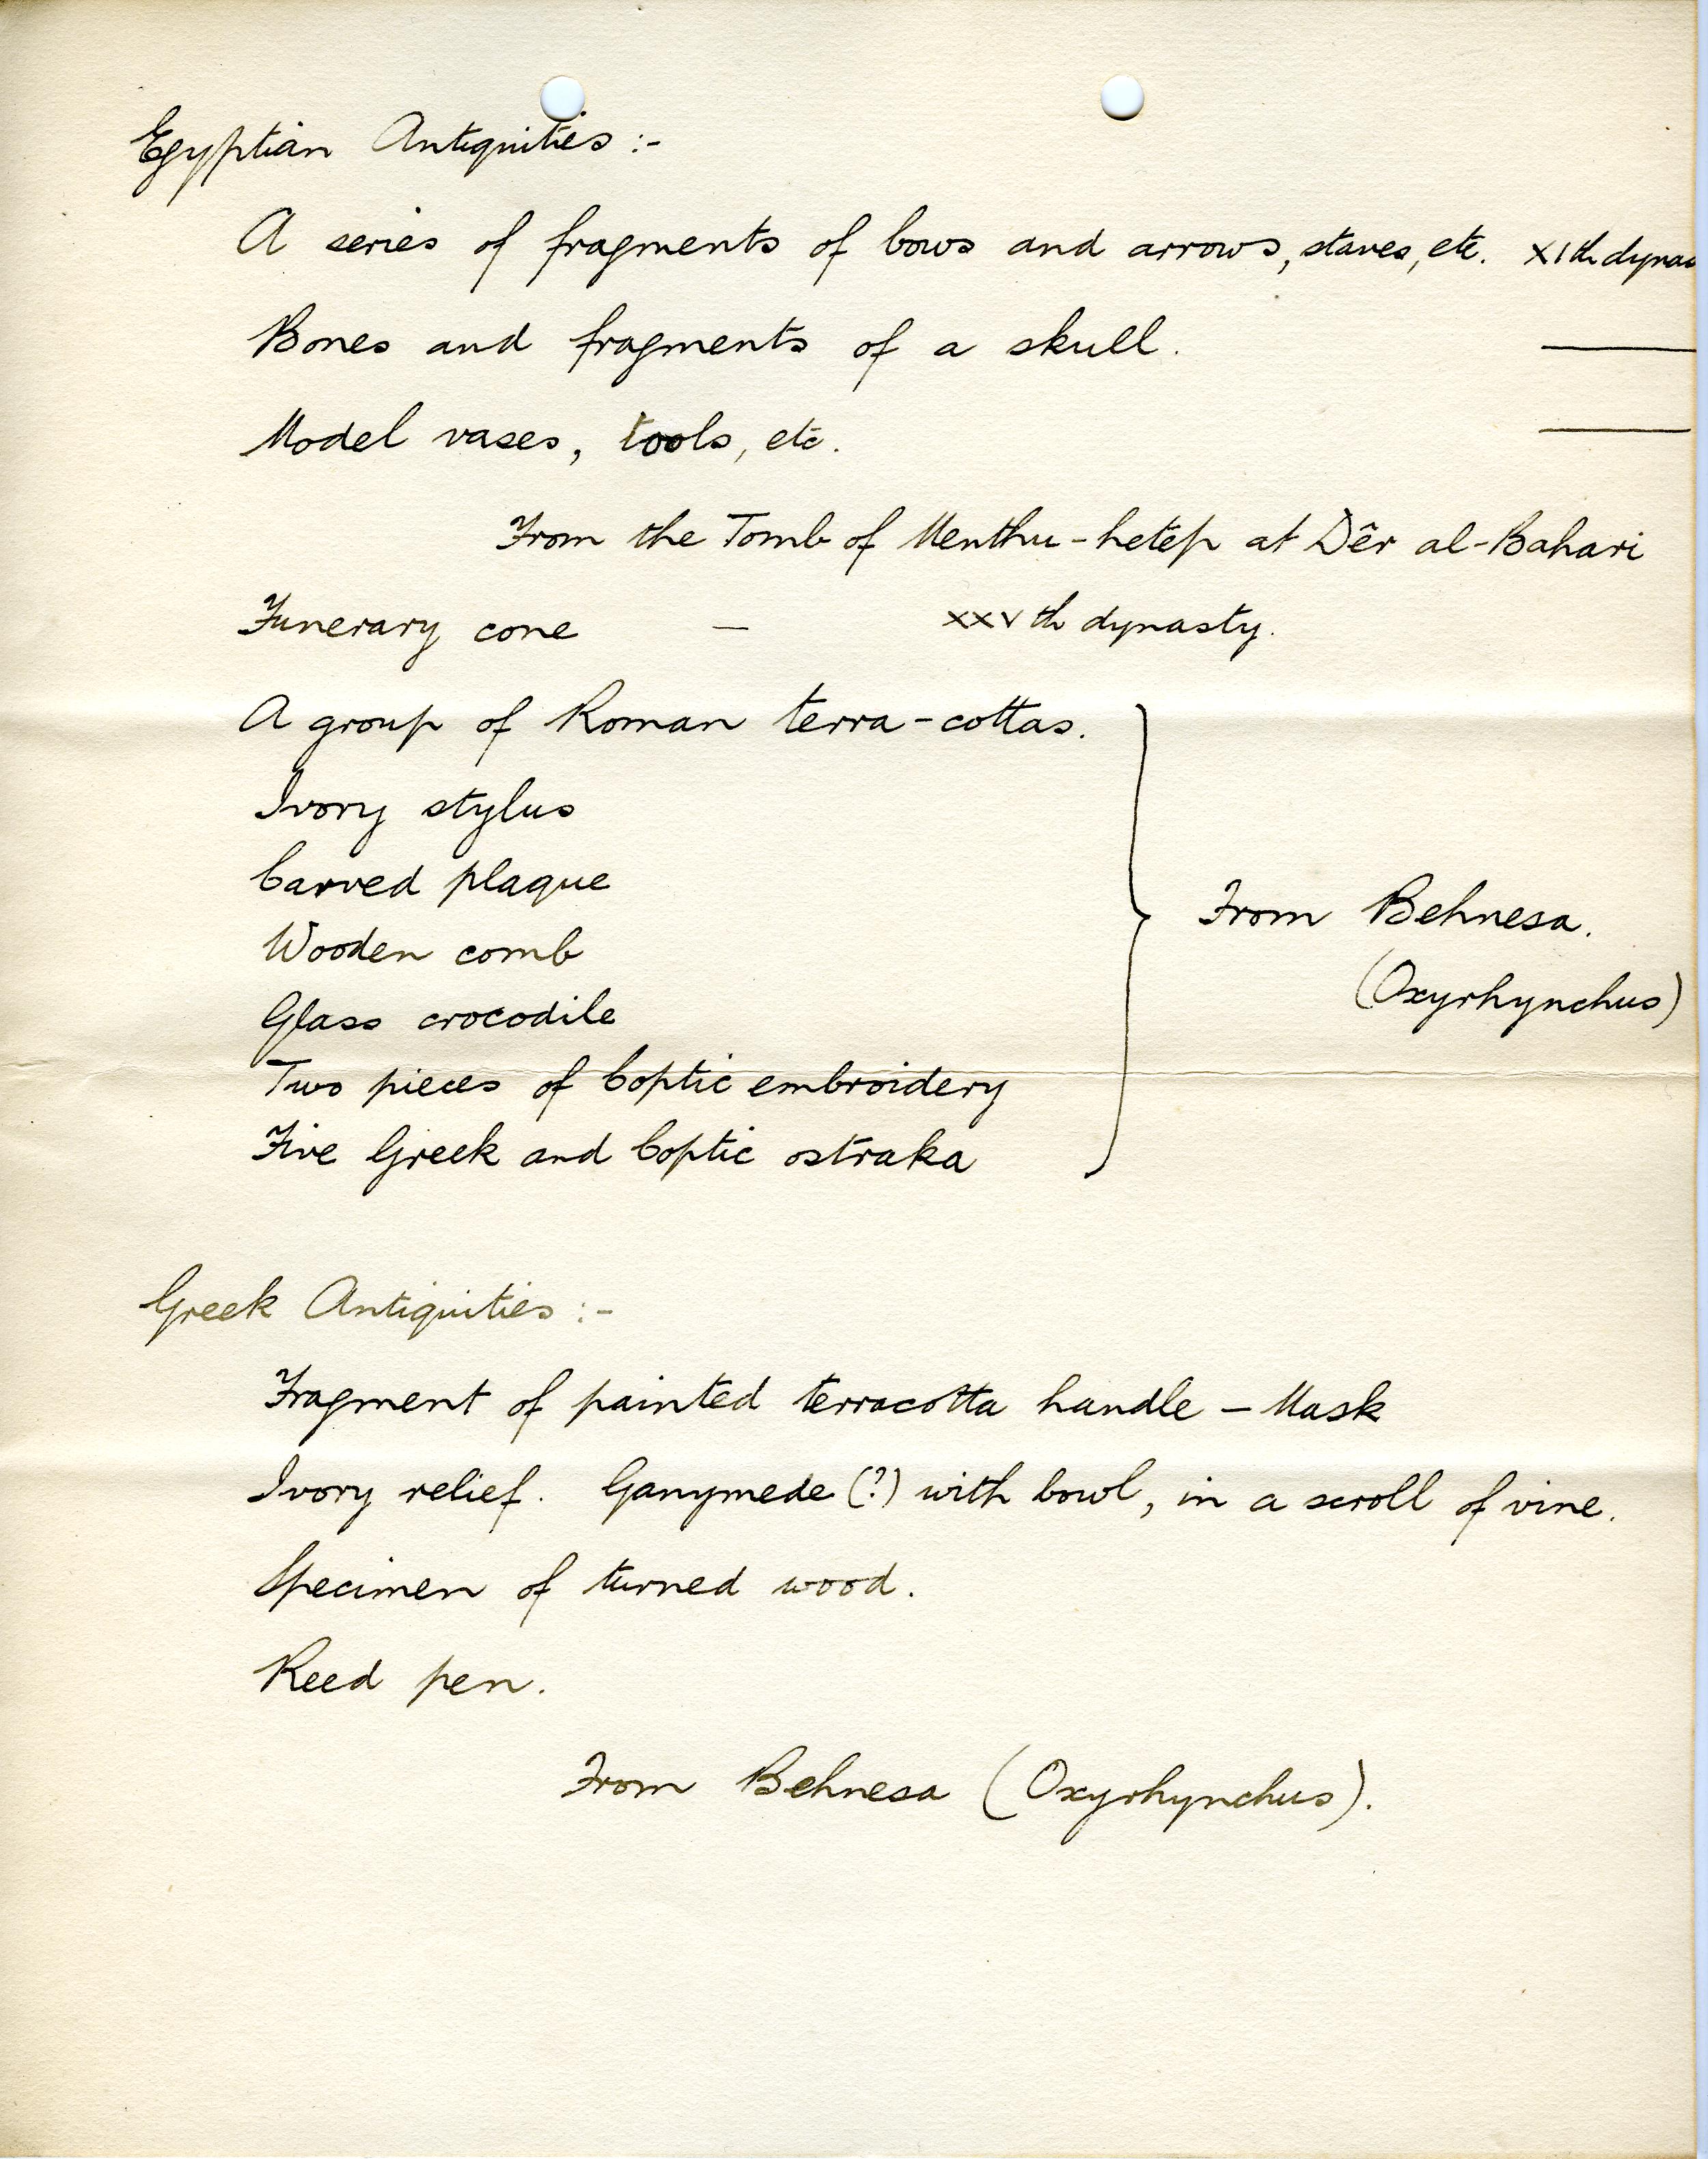 Egyptian Antiquities :-
A series of fragments of bows and arrows, staves, etc. XIth dynas
Bones and fragments of a skull. ———
Model vases, tools, etc. ———
From the Tomb of Menthu-hetep at Dêr al-Bahari
Funerary cone — XXVth dynasty.
A group of Roman terra-cottas.
Ivory stylus
Carved plaque
Wooden comb
Glass crocodile
Two pieces of Coptic embroidery
Five Greek and Coptic ostraka
From Behnesa.
(Oxyrhynchus)
Greek Antiquities :-
Fragment of painted terracotta handle – Mask
Ivory relief. Ganymede (?) with bowl, in a scroll of vine.
Specimen of turned wood.
Reed pen.
From Behnesa (Oxyrhynchus).